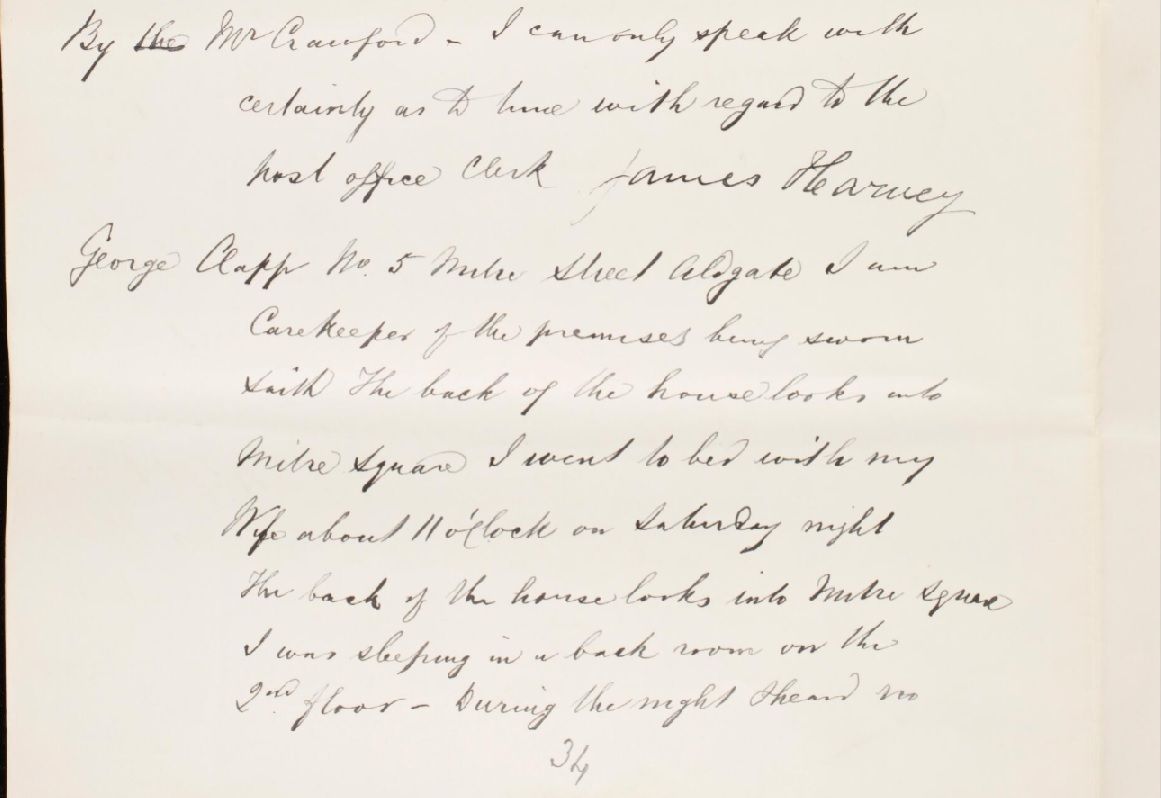 By the Mr Crawford - I can only speak with
certainty as to time with regard to the
post office Clerk James Harvey
George Clapp No. 5 Mitre Street Aldgate I am
Carekeeper of the premises being sworn
saith The back of the house looks into
Mitre Square I went to bed with my
Wife about 11 o'Clock on Saturday night
The back of the house looks into Mitre Square
I was sleeping in a back room on the
2nd. floor - During the night I heard no
34